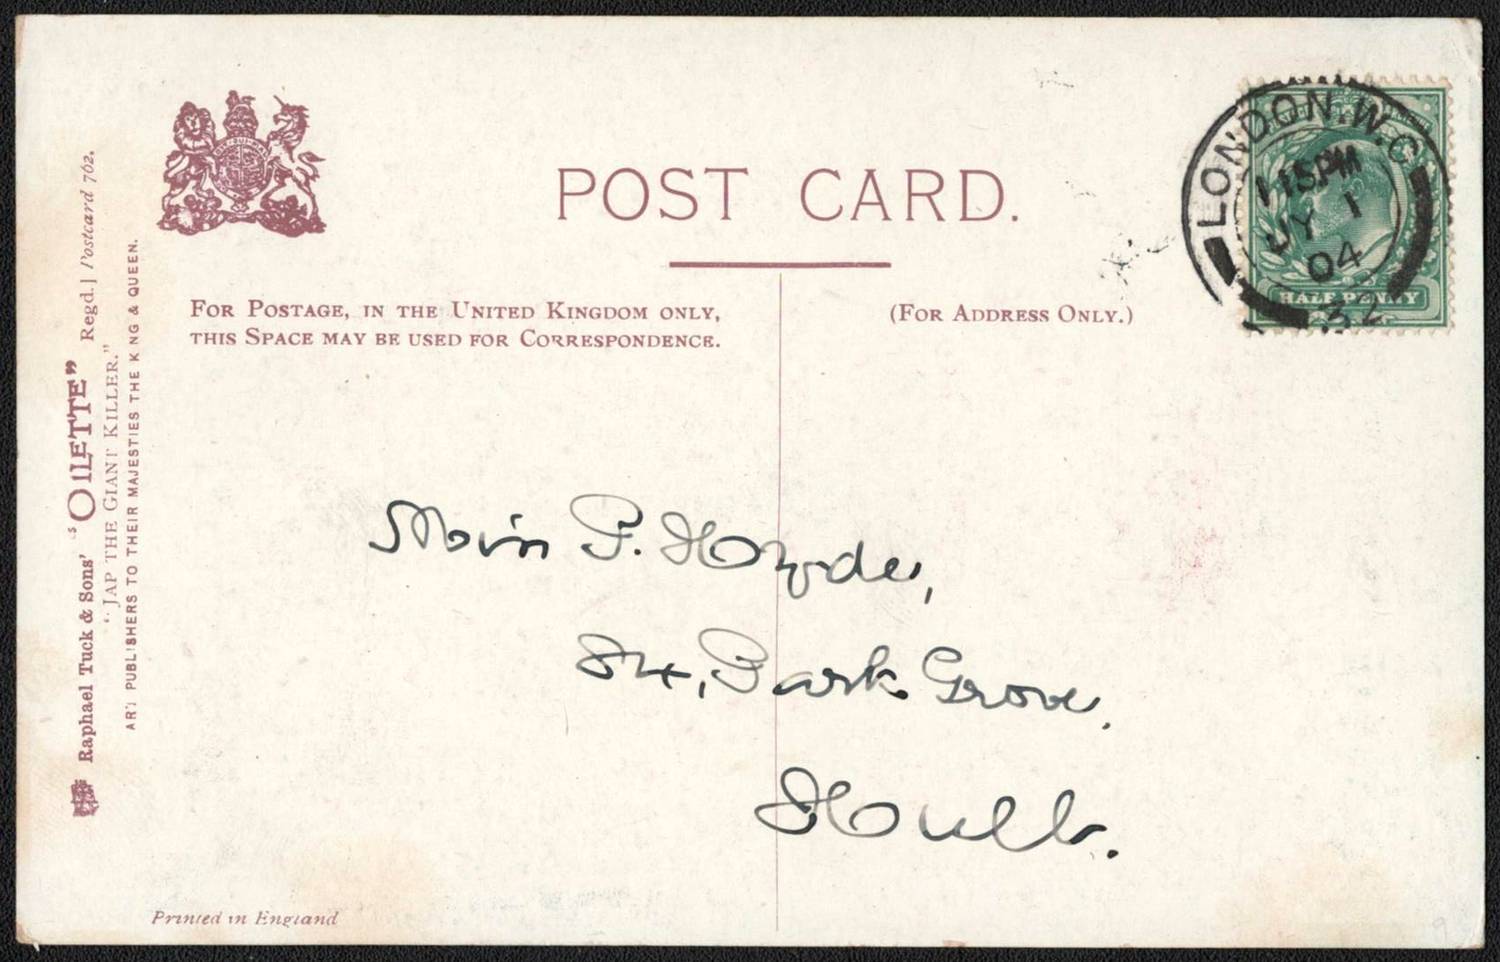 POST CARD.
FOR POSTAGE, IN THE UNITED KINGDOM ONLY,
THIS SPACE MAY BE USED FOR CORRESPONDENCE.
(FOR ADDRESS ONLY.)
LONDON. W.C
1 15PM
JY 1
04
32
HALF PENNY
Raphael Tuck & Sons' "OILETTE" Regd.] Postcard 762.
"JAP THE GIANT KILLER."
ART PUBLISHERS TO THEIR MAJESTIES THE KING & QUEEN.
P. Hoyder,
84, Park Grove,
Hull.
Printed in England